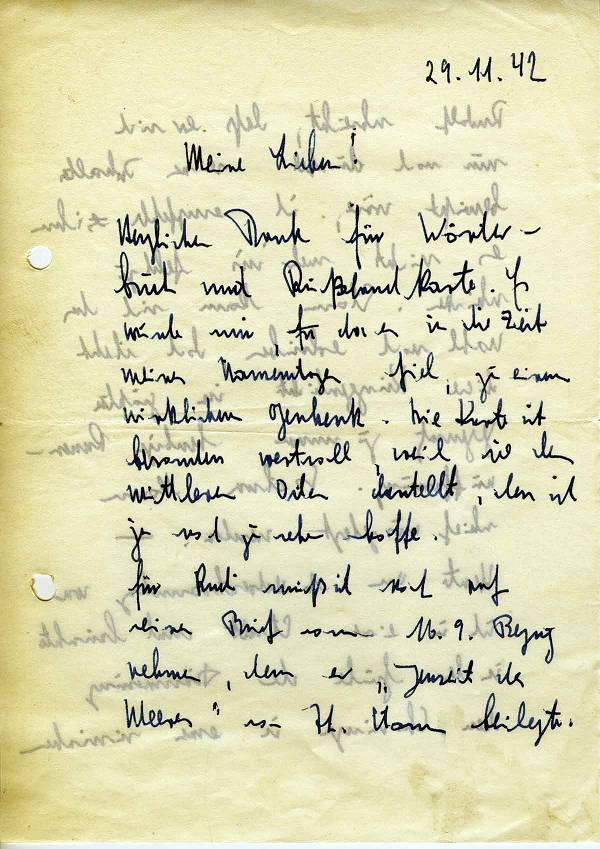 29.11.42
Meine Lieben!
Herzlichen Dank für Wörter-
buch und Rußlandkarte. Es
wurde mir, da es in die Zeit
meines Namenstages fiel, zu einem
wirklichen Geschenk. Die Karte ist
besonders wertvoll, weil sie den
mittleren Osten darstellt, den ich
ja noch zu sehen hoffe.
Für Rudi muß ich noch auf
seinen Brief vom 16.9. Bezug
nehmen, dem er „Jenseits des
Meeres" v. Th. beilegte.